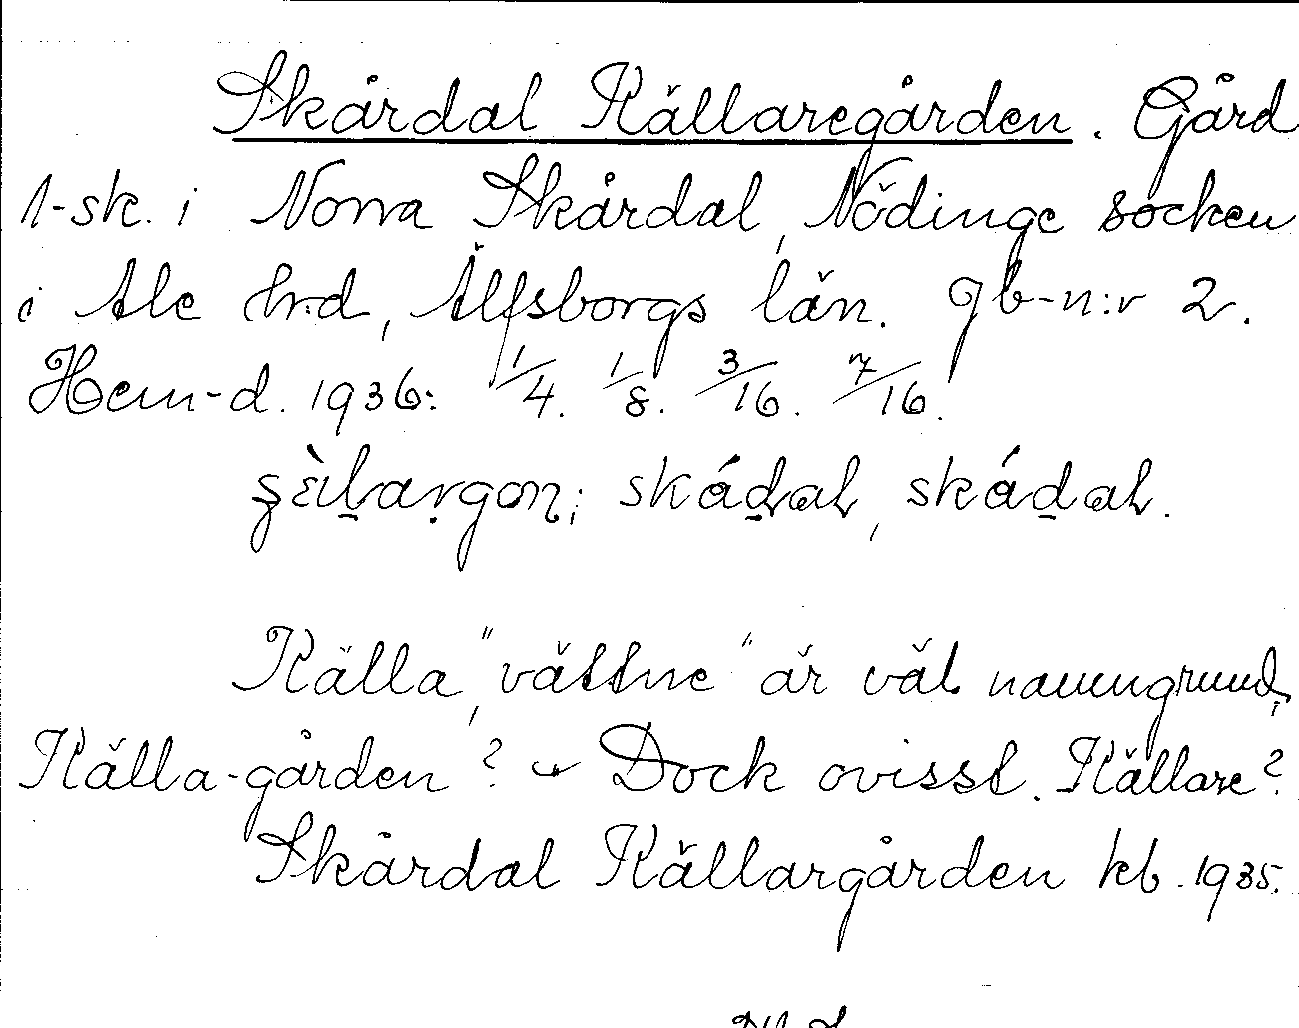 Skårdal Källaregården. Gård
1-sk. i Norra Skårdal, Nödinge socken
i Ale hrd, Älfsborgs län. Jb-n:r 2.
Hem-d. 1936: 1/4. 1/8. 3/16. 7/16.
skådal, skådal.
Källa, "vättne" är väl namngrund;
Källa-gården? Dock ovisst. Källare?
Skårdal Källargården kb. 1935.